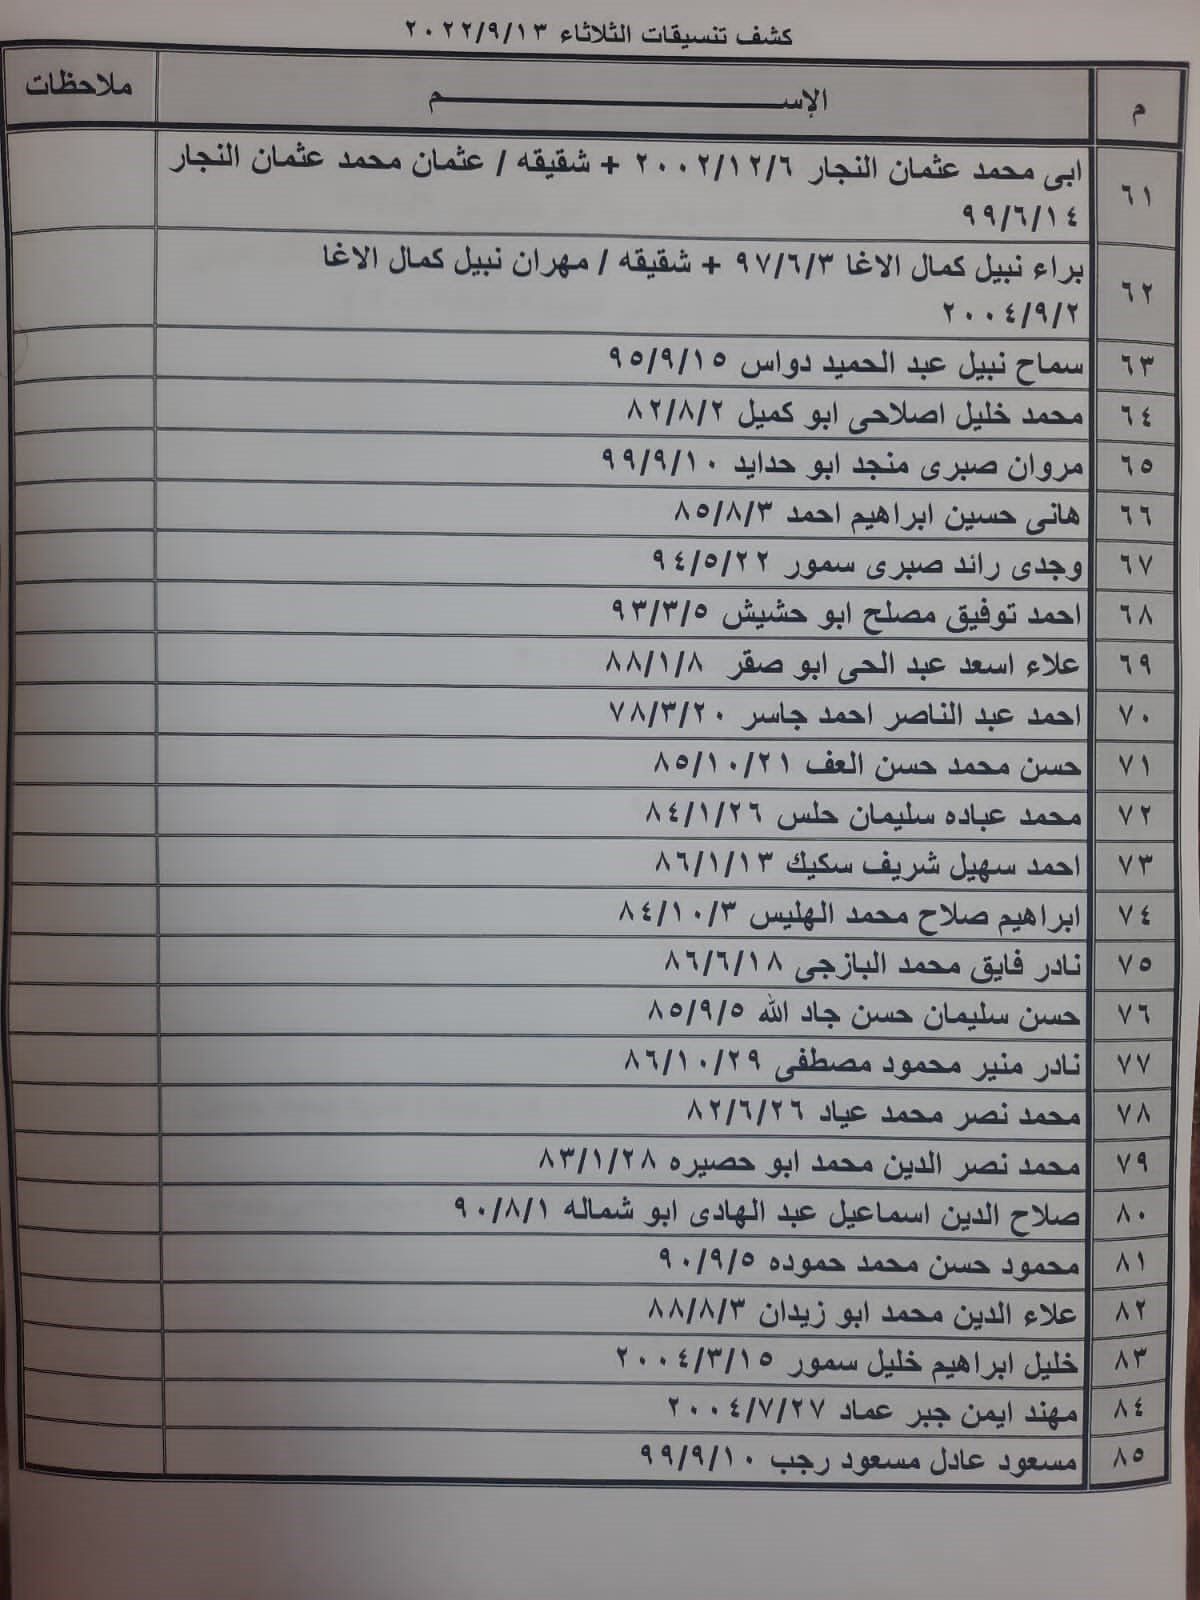 كشف تنسيقات الثلاثاء ٢٠٢٢/٩/١٣
م الإســـــــــــــــــــــــم ملاحظات
٦١ ابى محمد عثمان النجار ٢٠٠٢/١٢/٦ + شقيقه / عثمان محمد عثمان النجار
٩٩/٦/١٤
٦٢ براء نبيل كمال الاغا ٩٧/٦/٣ + شقيقه / مهران نبيل كمال الاغا
٢٠٠٤/٩/٢
٦٣ سماح نبيل عبد الحميد دواس ٩٥/٩/١٥
٦٤ محمد خليل اصلاحى ابو كميل ٨٢/٨/٢
٦٥ مروان صبرى منجد ابو حدايد ٩٩/٩/١٠
٦٦ هانى حسين ابراهيم احمد ٨٥/٨/٣
٦٧ وجدى رائد صبرى سمور ٩٤/٥/٢٢
٦٨ احمد توفيق مصلح ابو حشيش ٩٣/٣/٥
٦٩ علاء اسعد عبد الحى ابو صقر ٨٨/١/٨
٧٠ احمد عبد الناصر احمد جاسر ٧٨/٣/٢٠
٧١ حسن محمد حسن العف ٨٥/١٠/٢١
٧٢ محمد عباده سليمان حلس ٨٤/١/٢٦
٧٣ احمد سهيل شريف سكيك ٨٦/١/١٣
٧٤ ابراهيم صلاح محمد الهليس ٨٤/١٠/٣
٧٥ نادر فايق محمد البازجى ٨٦/٦/١٨
٧٦ حسن سليمان حسن جاد الله ٨٥/٩/٥
٧٧ نادر منير محمود مصطفى ٨٦/١٠/٢٩
٧٨ محمد نصر محمد عياد ٨٢/٦/٢٦
٧٩ محمد نصر الدين محمد ابو حصيره ٨٣/١/٢٨
٨٠ صلاح الدين اسماعيل عبد الهادى ابو شماله ٩٠/٨/١
٨١ محمود حسن محمد حموده ٩٠/٩/٥
٨٢ علاء الدين محمد ابو زيدان ٨٨/٨/٣
٨٣ خليل ابراهيم خليل سمور ٢٠٠٤/٣/١٥
٨٤ مهند ايمن جبر عماد ٢٠٠٤/٧/٢٧
٨٥ مسعود عادل مسعود رجب ٩٩/٩/١٠